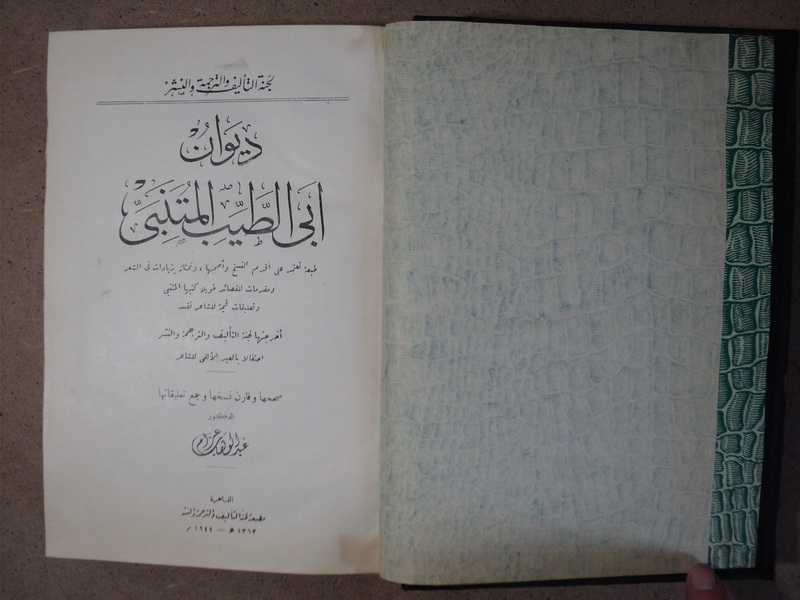 لجنة التأليف والترجمة والنشر
ديوان
أبى الطيب المتنبى
طبعة تعتمد على أقدم النسخ وأصحها، وتمتاز بزيادات فى الشعر
ومقدمات للقصائد طويلة كتبها المتنبى
وتعليقات قيمة للشاعر نفسه
أخرجتها لجنة التأليف والترجمة والنشر
احتفالا بالعيد الألفى للشاعر
صححها وقارن نسخها وجمع تعليقاتها
الدكتور
عبد الوهاب عزام
القاهرة
مطبعة لجنة التأليف والترجمة والنشر
١٣٦٣ هـ — ١٩٤٤ م